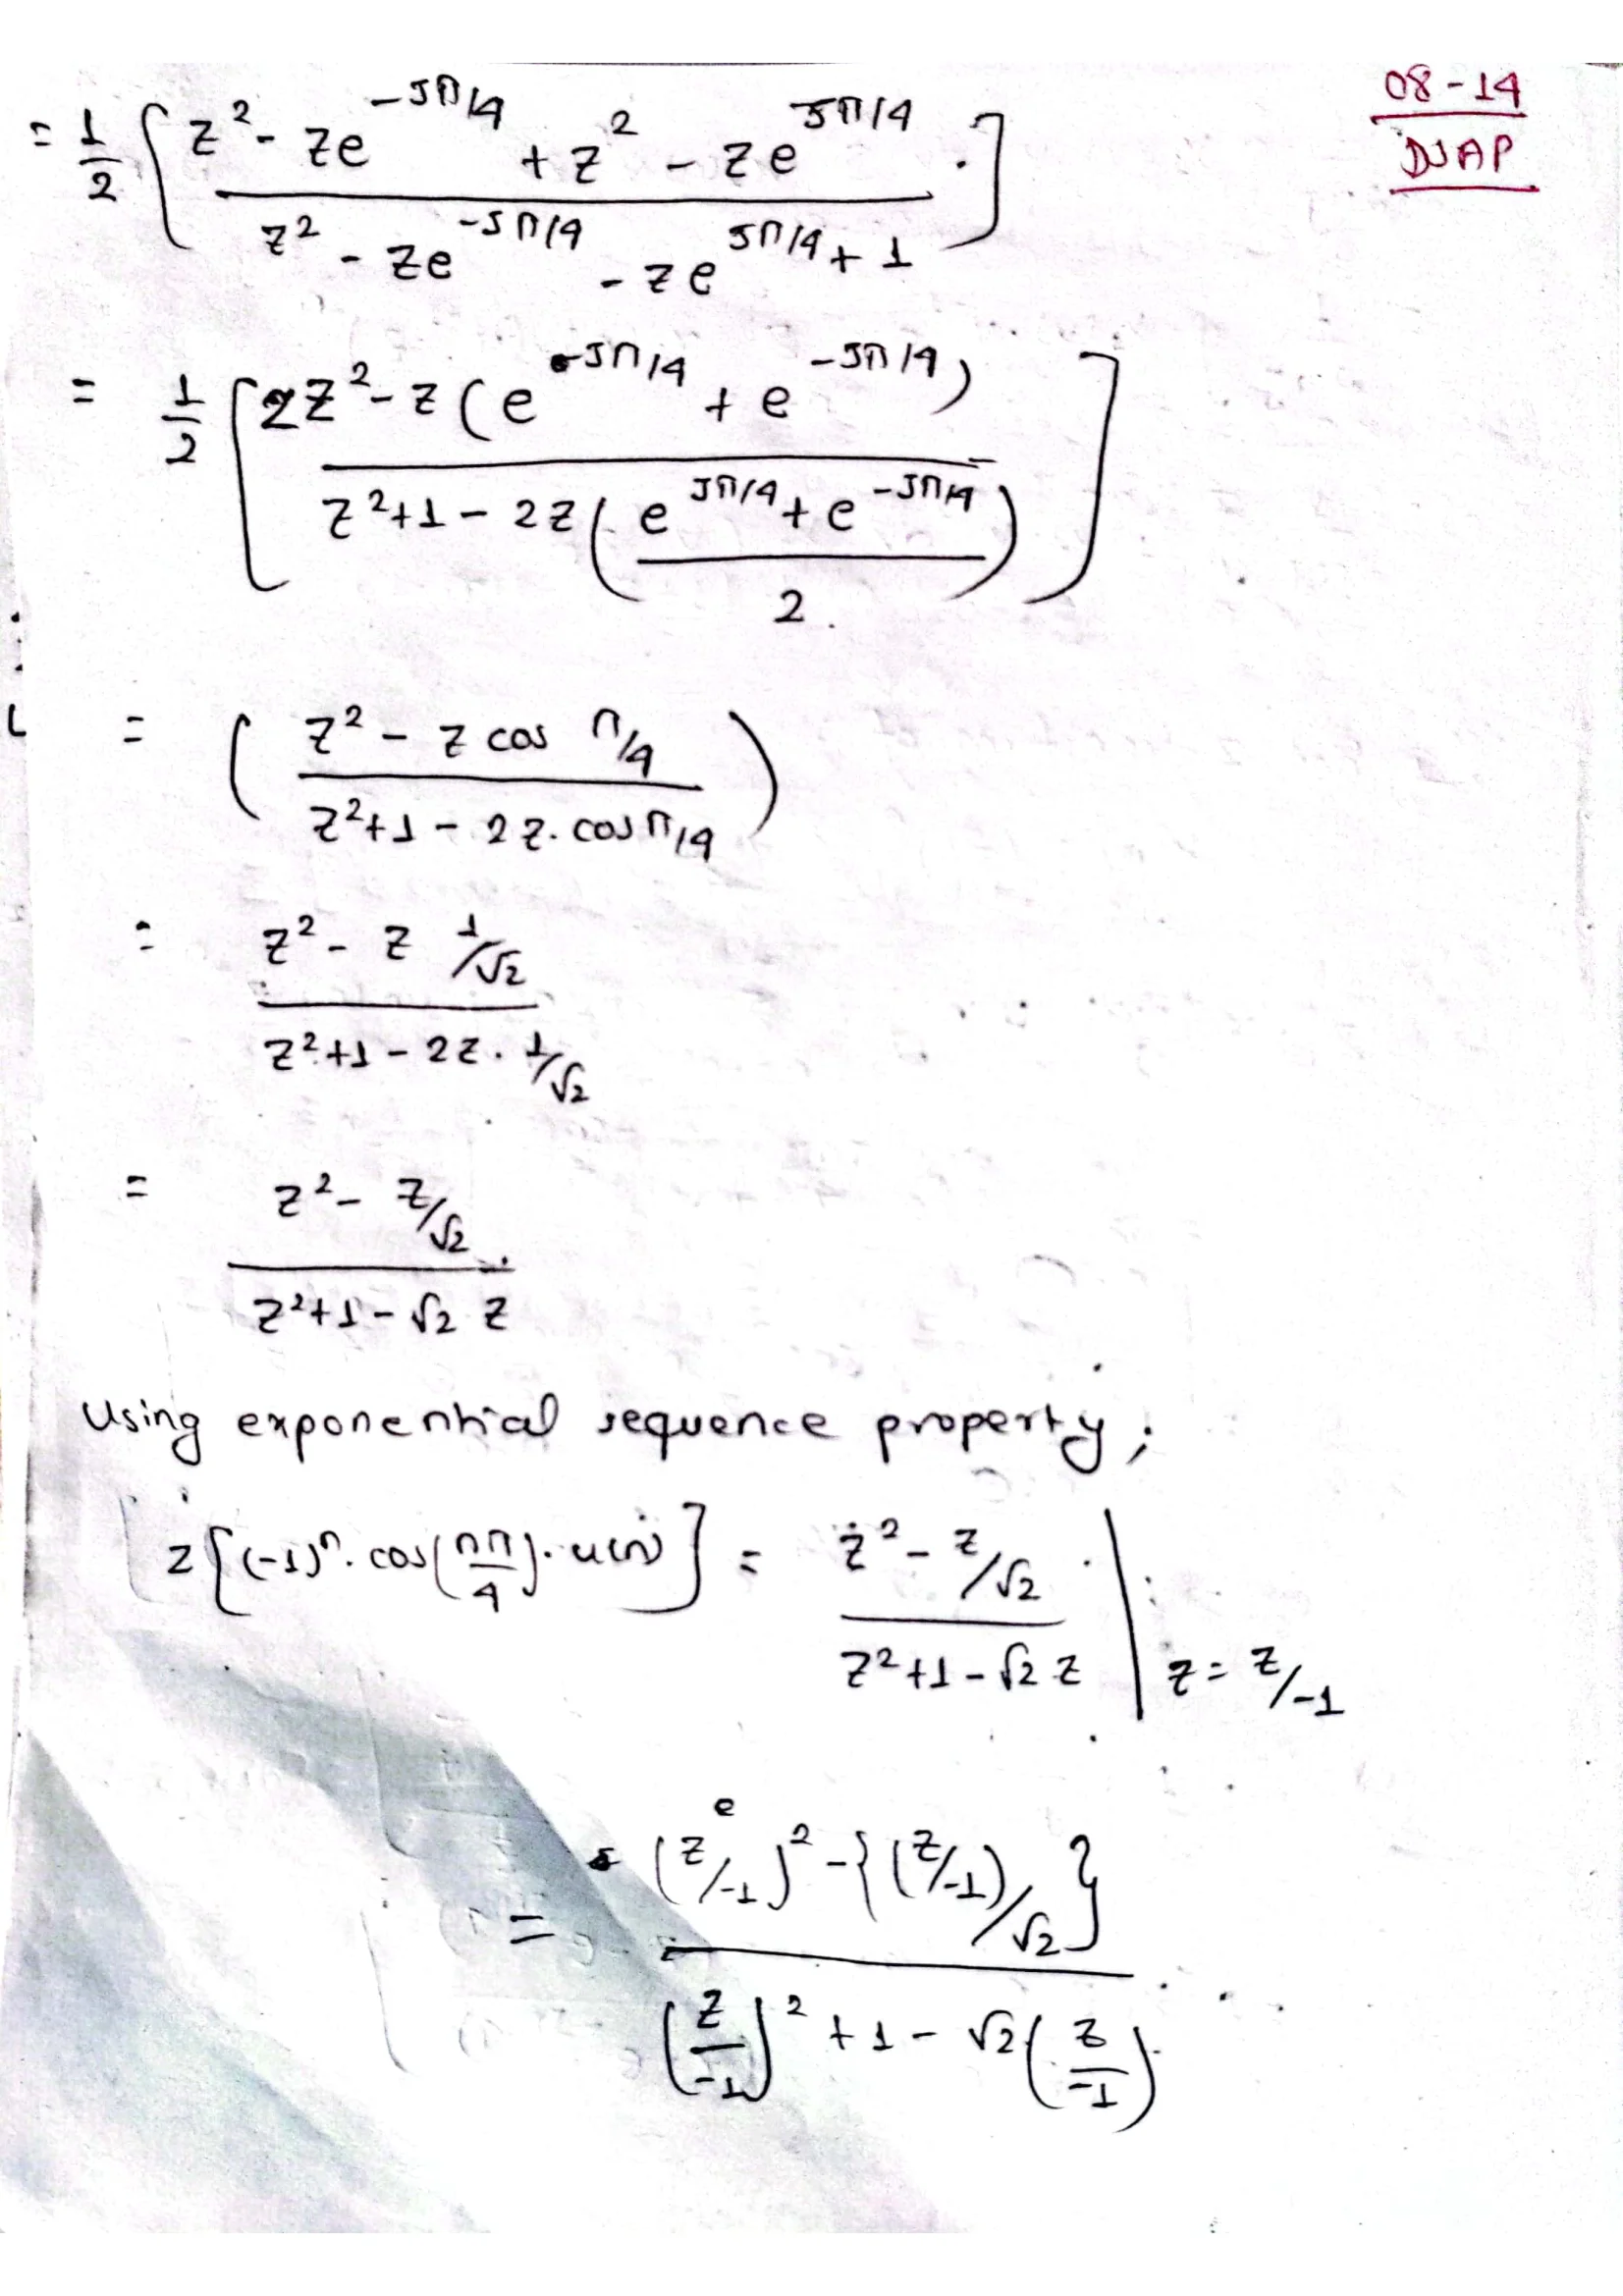 08-14
DJAP
= 1/2 [ (z² - ze^(-jπ/4) + z² - ze^(jπ/4)) / (z² - ze^(-jπ/4) - ze^(jπ/4) + 1) ]
= 1/2 [ (2z² - z(e^(jπ/4) + e^(-jπ/4))) / (z²+1 - 2z((e^(jπ/4) + e^(-jπ/4))/2)) ]
= ( (z² - z cos π/4) / (z²+1 - 2z. cos π/4) )
= (z² - z 1/√2) / (z²+1 - 2z. 1/√2)
= (z² - z/√2) / (z²+1 - √2 z)
Using exponential sequence property;
z[(-1)ⁿ. cos(nπ/4). u(n)] = (z² - z/√2) / (z²+1 - √2 z) | z = z/-1
= ((z/-1)² - {(z/-1)/√2}) / ((z/-1)² + 1 - √2(z/-1))